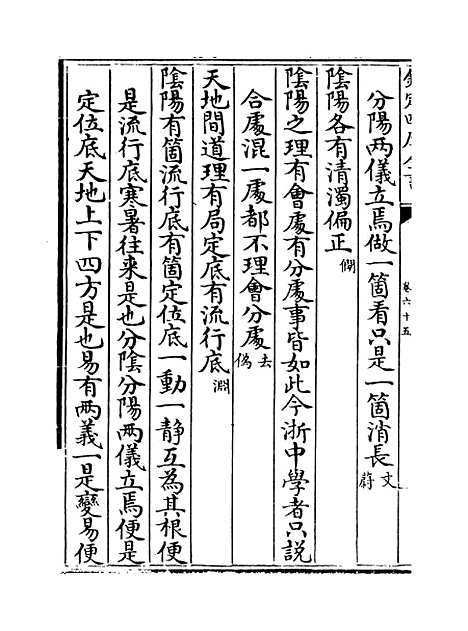 欽定四庫全書
卷六十五
分陽兩儀立焉做一箇看只是一箇消長文蔚
陰陽各有清濁偏正僩
陰陽之理有會處有分處事皆如此今浙中學者只說
合處混一處都不理會分處去偽
天地間道理有局定底有流行底淵
陰陽有箇流行底有箇定位底一動一静互為其根便
是流行底寒暑往來是也分陰分陽兩儀立焉便是
定位底天地上下四方是也易有兩義一是變易便